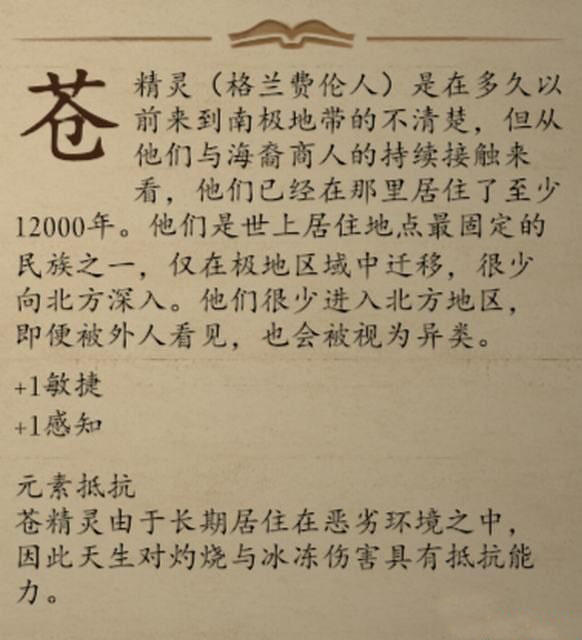 苍精灵（格兰费伦人）是在多久以
前来到南极地带的不清楚，但从
他们与海裔商人的持续接触来
看，他们已经在那里居住了至少
12000年。他们是世上居住地点最固定的
民族之一，仅在极地区域中迁移，很少
向北方深入。他们很少进入北方地区，
即便被外人看见，也会被视为异类。
+1敏捷
+1感知
元素抵抗
苍精灵由于长期居住在恶劣环境之中，
因此天生对灼烧与冰冻伤害具有抵抗能
力。